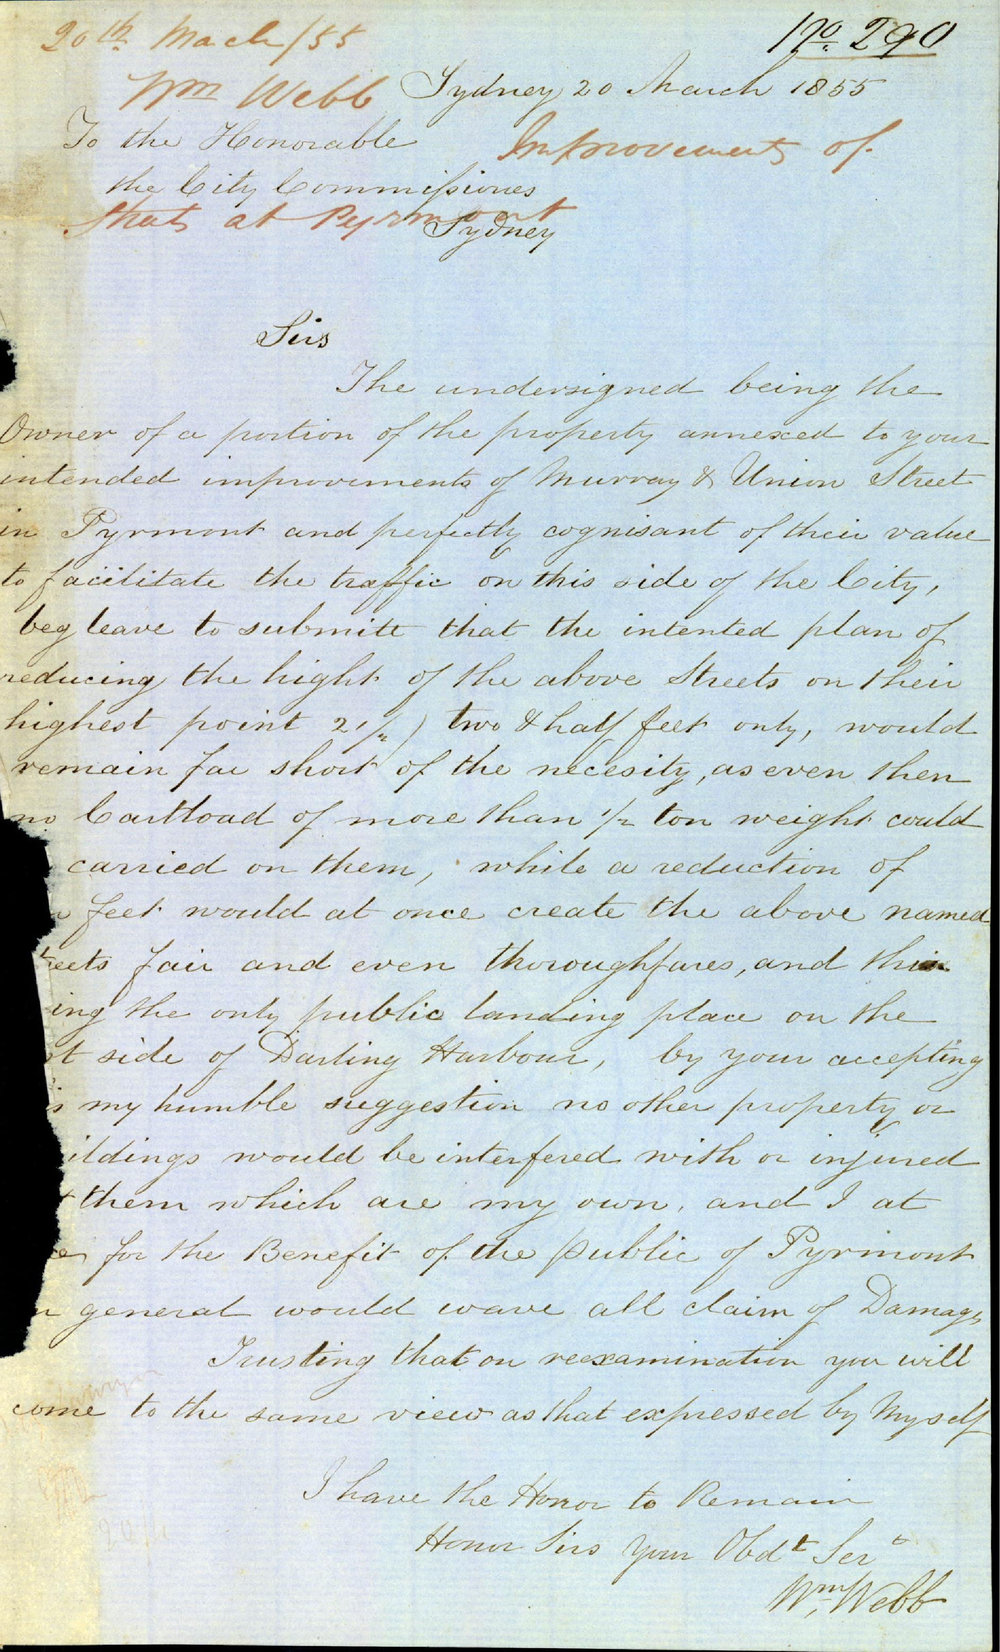 20th March/55
No 290
Wm Webb
Sydney 20 March 1855
To the Honorable
Improvements of
the City Commissiones
Streets at Pyrmont
Sydney
Sirs
The undersigned being the
Owner of a portion of the property annexed to your
intended improvements of Murray & Union Street
in Pyrmont and perfectly cognisant of their value
to facilitate the traffic on this side of the City,
beg leave to submitt that the intented plan of
reducing the hight of the above Streets on their
highest point 2 1/2) two & half feet only, would
remain far short of the necesity, as even then
no Cartload of more than 1/2 ton weight could
carried on them, while a reduction of
feet would at once create the above named
eets fair and even thoroughfares, and this
ing the only public landing place on the
t side of Darling Harbour, by your accepting
s my humble suggestion no other property or
ildings would be interfered with or injured
t them which are my own, and I at
e for the Benefit of the public of Pyrmont
n general would wave all claim of Damage
Trusting that on reexamination you will
come to the same view as that expressed by Myself
I have the Honor to Remain
Honor Sirs your Obdt Sert
Wm Webb